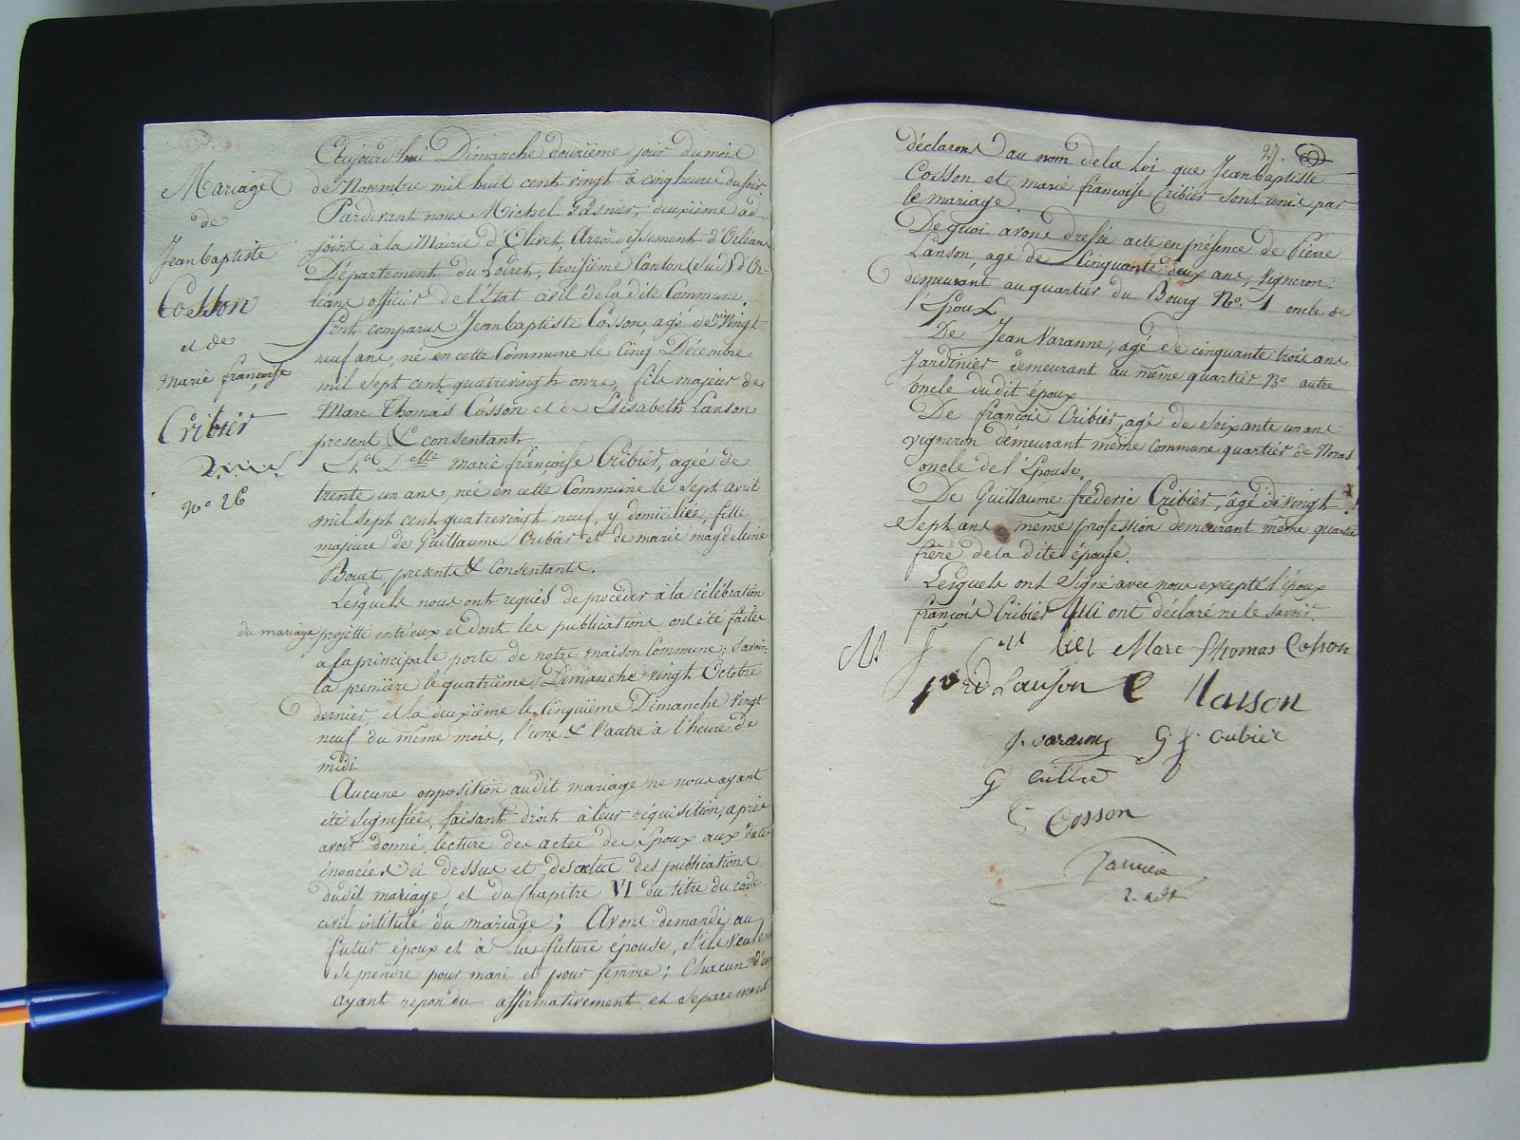 Mariage
de
Jean baptiste
Cosson
et de
marie françoise
Cribier
No 26
Aujourd'hui Dimanche douzième jour du mois
de Novembre mil huit cent vingt à cinq heures du soir.
Pardevant nous Michel deuxième ad-
joint à la Mairie d'Olivet, Arrondissement d'Orléans
Département du Loiret, troisième Canton (Sud) d'Or-
léans officier de l'état civil de la dite Commune.
Sont comparus Jean baptiste Cosson, agé de Vingt
neuf ans, né en cette Commune le Cinq Décembre
mil sept cent quatrevingt onze, fils majeur de
Marc Thomas Cosson et de Elisabeth Lanson
present & consentants
Et Delle marie françoise Cribier, agée de
trente un ans, née en cette Commune le Sept avril
mil sept cent quatrevingt neuf, y domiciliée, fille
majeure de Guillaume Cribier et de marie magdeleine
Bouet, presents & Consentants.
Lesquels nous ont requis de procéder à la célébration
du mariage projetté entr'eux et dont les publications ont été faites
a la principale porte de notre maison Commune; Savoir:
la première le quatrième Dimanche vingt Octobre
dernier, et la deuxième le Cinquième Dimanche Vingt
neuf du même mois, l'une & l'autre à l'heure de
midi
Aucune opposition audit mariage ne nous ayant
été Signifiée, faisant droit à leur réquisition, après
avoir donné lecture des actes des Epoux aux dates
énoncées ci dessus et des actes des publications
dudit mariage et du Chapitre VI du titre du code
civil intitulé du mariage; Avons demandé au
futur époux et à la future épouse, s'ils veulent
se prendre pour mari et pour femme; Chacun d'eux
ayant repondu affirmativement et Séparement
27.
déclarons au nom de la Loi que Jean baptiste
Cosson et marie françoise Cribier sont unis par
le mariage.
De quoi avons dressé acte en présence de Pierre
Lanson, agé de Cinquante deux ans, Vigneron,
demeurant au quartier du Bourg No. 1 oncle de
l'Epoux
De Jean Varanne, agé de cinquante trois ans
Jardinier demeurant au même quartier No autre
oncle dudit époux
De françois Cribier, agé de Soixante un ans
vigneron demeurant même commune quartier de
oncle de l'Epouse,
De Guillaume fréderic Cribier, âgé de vingt
Sept ans même profession demeurant même quartier
frère de la dite épouse.
Lesquels ont Signé avec nous excepté l'époux
françois Cribier qui ont déclaré ne le savoir.
Marc Thomas Cosson
Lanson E Lanson
G f. Cribier
G
Cosson
2. adjt